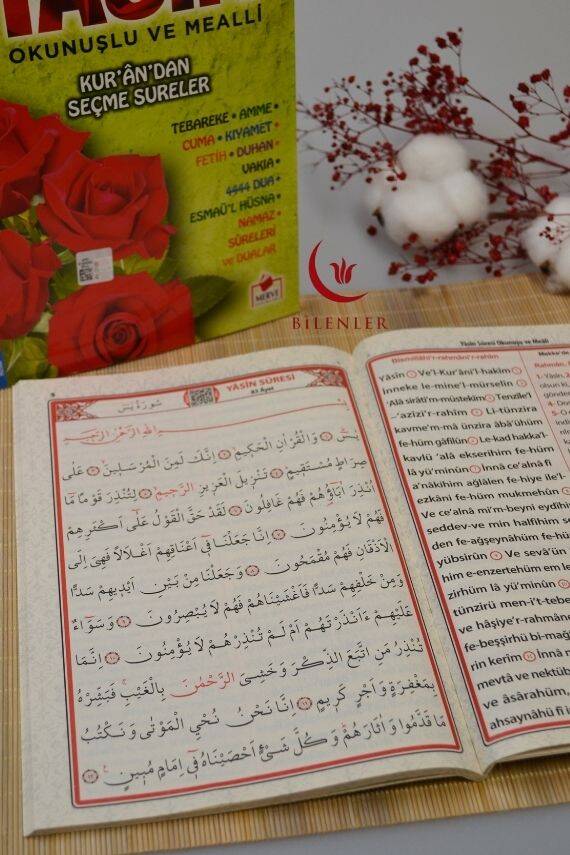 OKUNUŞLU VE MEALLİ
KUR'ÂN'DAN
SEÇME SURELER
TEBAREKE • AMME •
CUMA • KIYAMET •
FETİH • DUHAN •
VAKIA •
4444 DUA •
ESMAÜ'L HÜSNA •
NAMAZ
SÛRELERİ
VE DUALAR
MERVE
BİLENLER
YÂSÎN SÛRESİ
83 Ayet
سُورَةُ يٰسٓ
بِسْمِ اللّٰهِ الرَّحْمٰنِ الرَّحِيمِ
يٰسٓ ۝ وَالْقُرْاٰنِ الْحَكِيمِ ۝ اِنَّكَ لَمِنَ الْمُرْسَلِينَ ۝ عَلٰى
صِرَاطٍ مُسْتَقِيمٍ ۝ تَنْزِيلَ الْعَزِيزِ الرَّحِيمِ ۝ لِتُنْذِرَ قَوْمًا مَا
اُنْذِرَ اٰبَاؤُهُمْ فَهُمْ غَافِلُونَ ۝ لَقَدْ حَقَّ الْقَوْلُ عَلٰى اَكْثَرِهِمْ
فَهُمْ لَا يُؤْمِنُونَ ۝ اِنَّا جَعَلْنَا فِى اَعْنَاقِهِمْ اَغْلَالًا فَهِىَ اِلَى
الْاَذْقَانِ فَهُمْ مُقْمَحُونَ ۝ وَجَعَلْنَا مِنْ بَيْنِ اَيْدِيهِمْ سَدًّا
وَمِنْ خَلْفِهِمْ سَدًّا فَاَغْشَيْنَاهُمْ فَهُمْ لَا يُبْصِرُونَ ۝ وَسَوَاءٌ
عَلَيْهِمْ ءَاَنْذَرْتَهُمْ اَمْ لَمْ تُنْذِرْهُمْ لَا يُؤْمِنُونَ ۝ اِنَّمَا
تُنْذِرُ مَنِ اتَّبَعَ الذِّكْرَ وَخَشِىَ الرَّحْمٰنَ بِالْغَيْبِ فَبَشِّرْهُ
بِمَغْفِرَةٍ وَاَجْرٍ كَرِيمٍ ۝ اِنَّا نَحْنُ نُحْيِ الْمَوْتٰى وَنَكْتُبُ
مَا قَدَّمُوا وَاٰثَارَهُمْ وَكُلَّ شَىْءٍ اَحْصَيْنَاهُ فِى اِمَامٍ مُبِينٍ ۝
Yâsîn Sûresi Okunuşu ve Meâli
Bismillâhi'r-rahmâni'r-rahîm
yâsîn Ve'l-Kur'âni'l-hakîm
İnneke le-mine'l-mürselîn
Alâ sirâti'm-müstekîm Tenzîle'l
'azîzi'r-rahîm Li-tünzira
kavme'm-mâ ünzira âbâ'ühüm
fe-hüm gâfilûn Le-kad hakka'l-
kavlü 'alâ ekserihim fe-hüm
lâ yü'minûn İnnâ ce'alnâ fî
a'nâkihim ağlâlen fe-hiye ile'l-
ezkâni fe-hüm mukmehûn
Ve ce'alnâ mi'm-beyni eydîhim
seddev-ve min halfihim sedden
fe-ağşeynâhüm fe-hüm
yübsirûn Ve sevâ'ün
him e-enzertehüm em lem
zirhüm lâ yü'minûn
tünzirü men-i't-tebe
ve hâşiye'r-rahmâne
fe-beşşirhü bi-mağ
rin kerîm İnnâ n
mevtâ ve nektüb
ve âsârahüm,
ahsaynâhü fî im